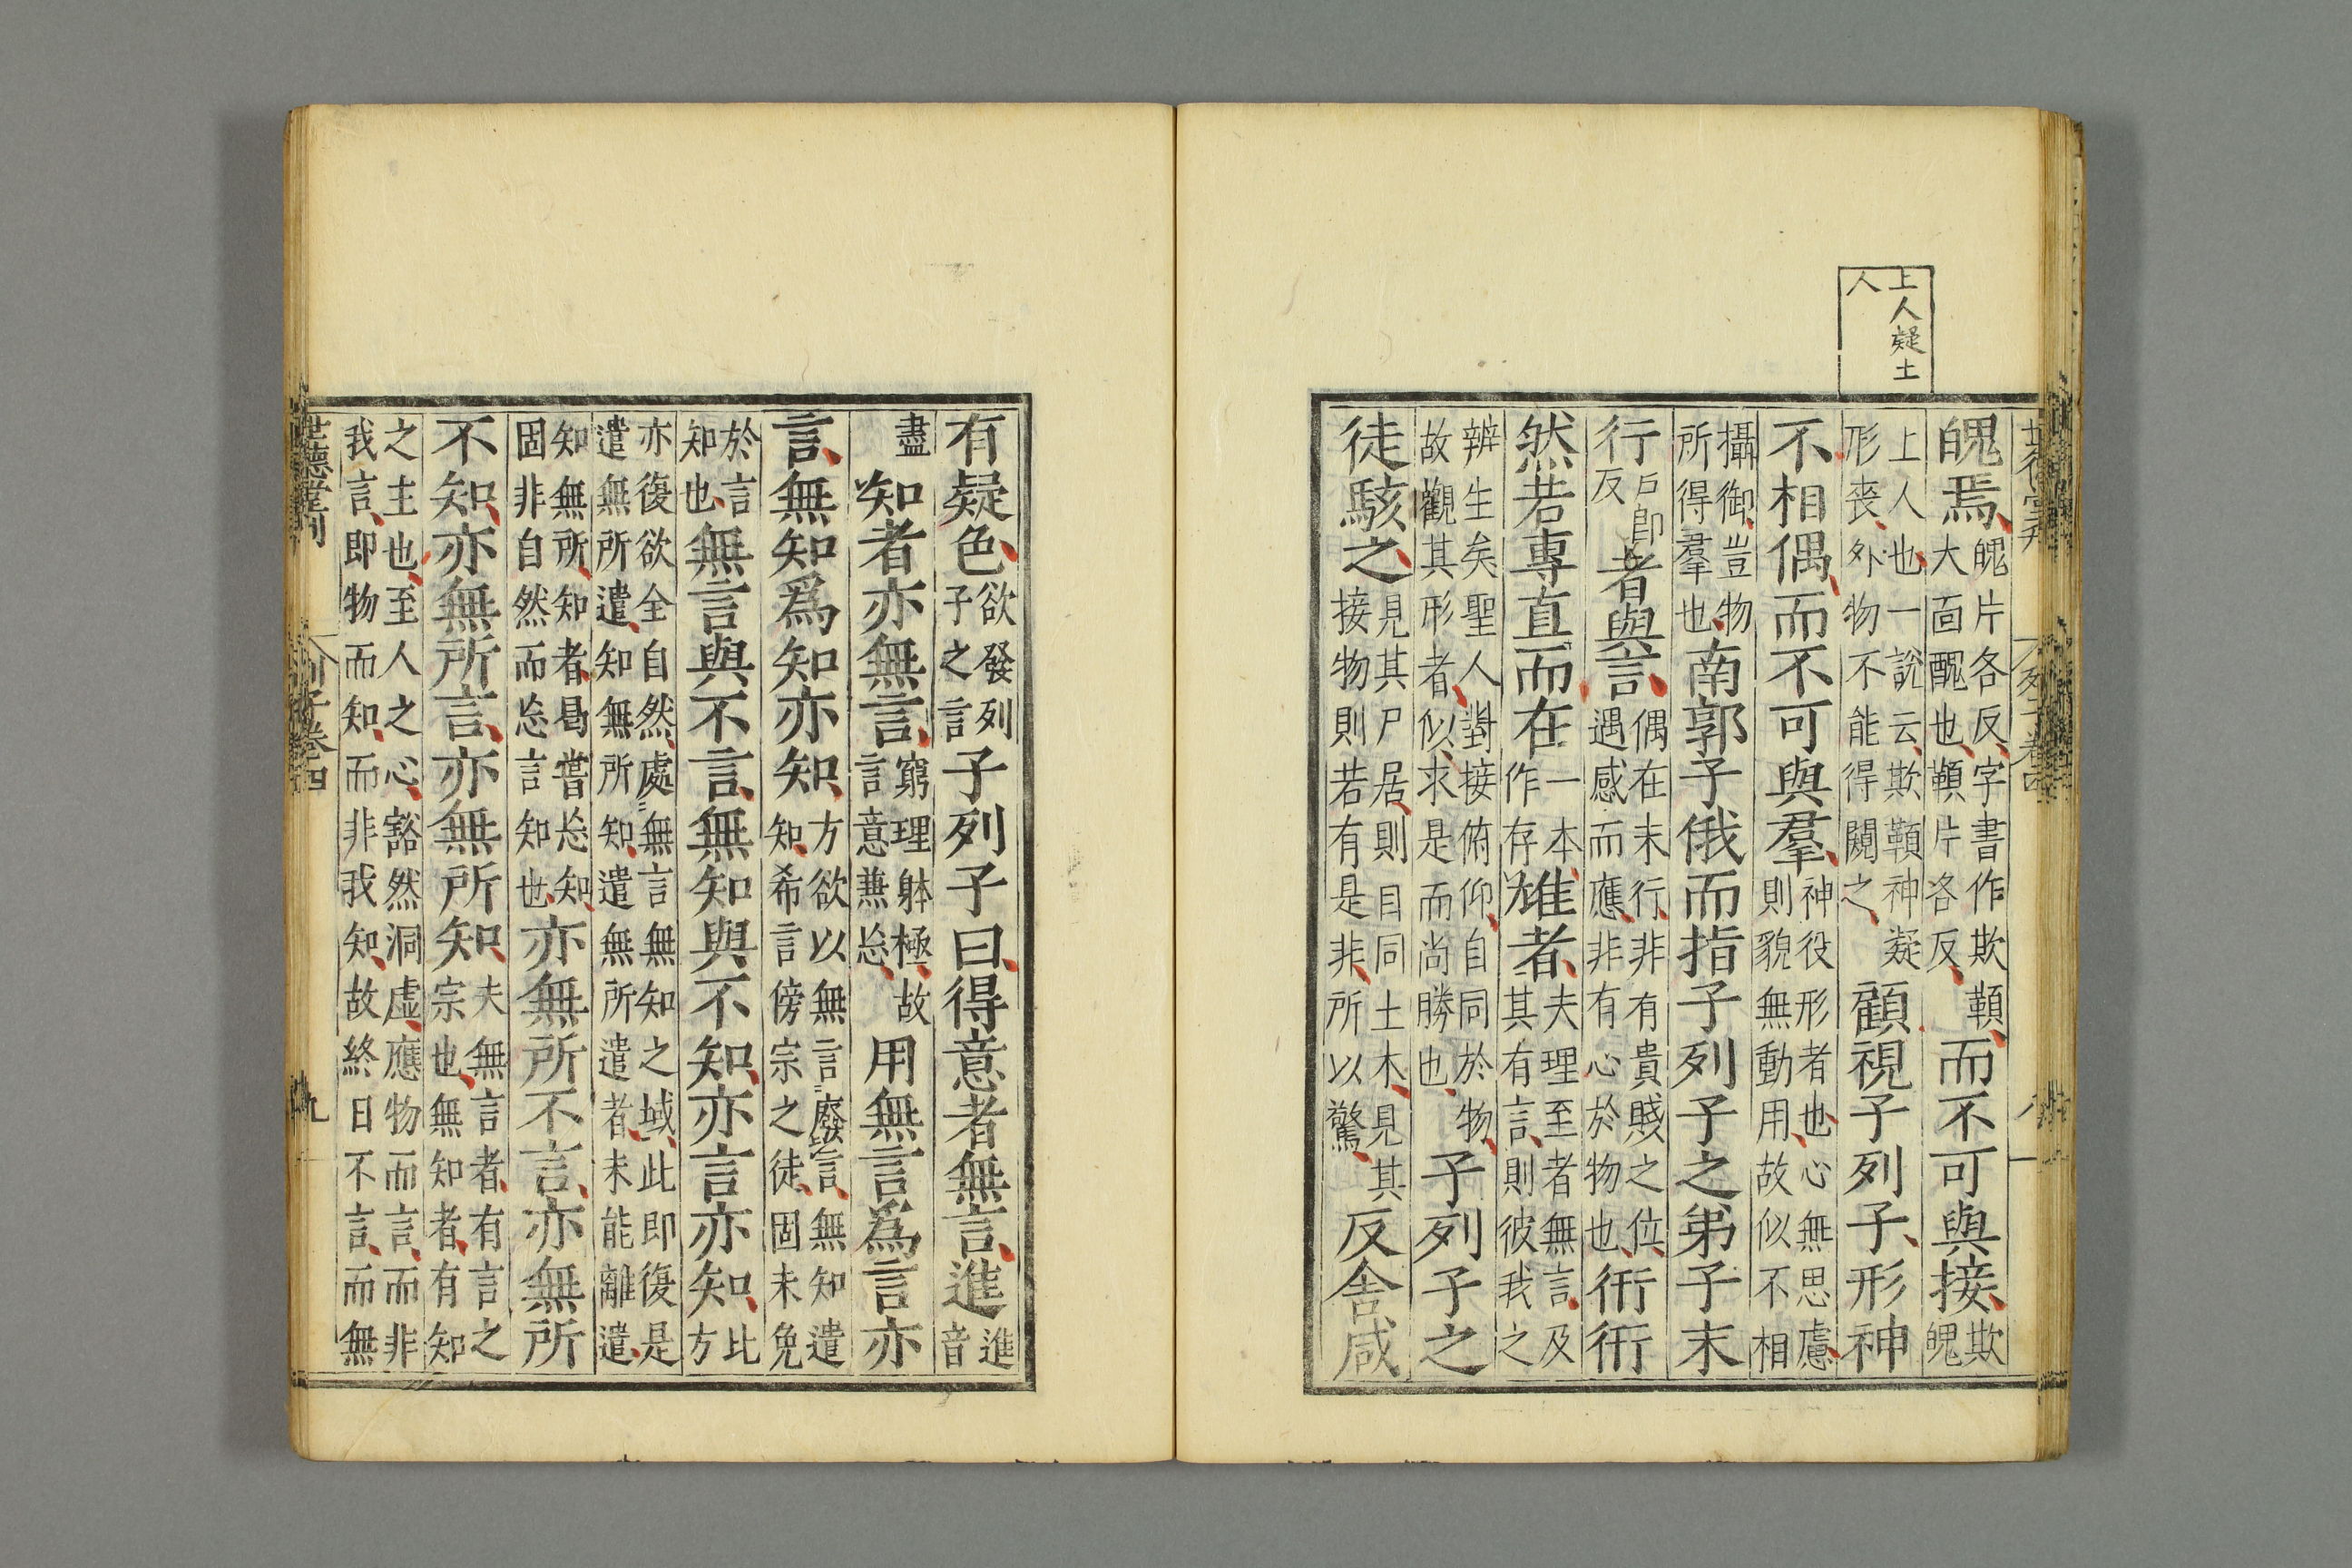 上人疑土
人
魄焉魄片各反字書作欺䫏大面醜也䫏片各反而不可與接欺魄
上人也一說云欺䫏神凝形喪外物不能得闚之顧視子列子形神
不相偶而不可與羣神役形者也心無思慮則貌無動用故似不相
攝御豈物所得羣也南郭子俄而指子列子之弟子末
行戶郎反者與言偶在末行非有貴賤之位遇感而應非有心於物也衎衎
然若專直而在一本作存雄者夫理至者無言及其有言則彼我之
辨生矣聖人對接俯仰自同於物故觀其形者似求是而尚勝也子列子之
徒駭之見其尸居則目同土木見其接物則若有是非所以驚反舍咸
有疑色欲發列子之言子列子曰得意者無言進進音
盡知者亦無言窮理躰極故言意兼忘用無言爲言亦
言無知爲知亦知方欲以無言廢言無知遣知希言傍宗之徒固未免
於言知也無言與不言無知與不知亦言亦知比方
亦復欲全自然處無言無知之域此即復是遣無所遣知無所知遣無所遣者未能離遣
知無所知者曷嘗忘知固非自然而忘言知也亦無所不言亦無所
不知亦無所言亦無所知夫無言者有言之宗也無知者有知
之主也至人之心豁然洞虛應物而言而非我言即物而知而非我知故終日不言而無
世德堂刊
列子卷四
九